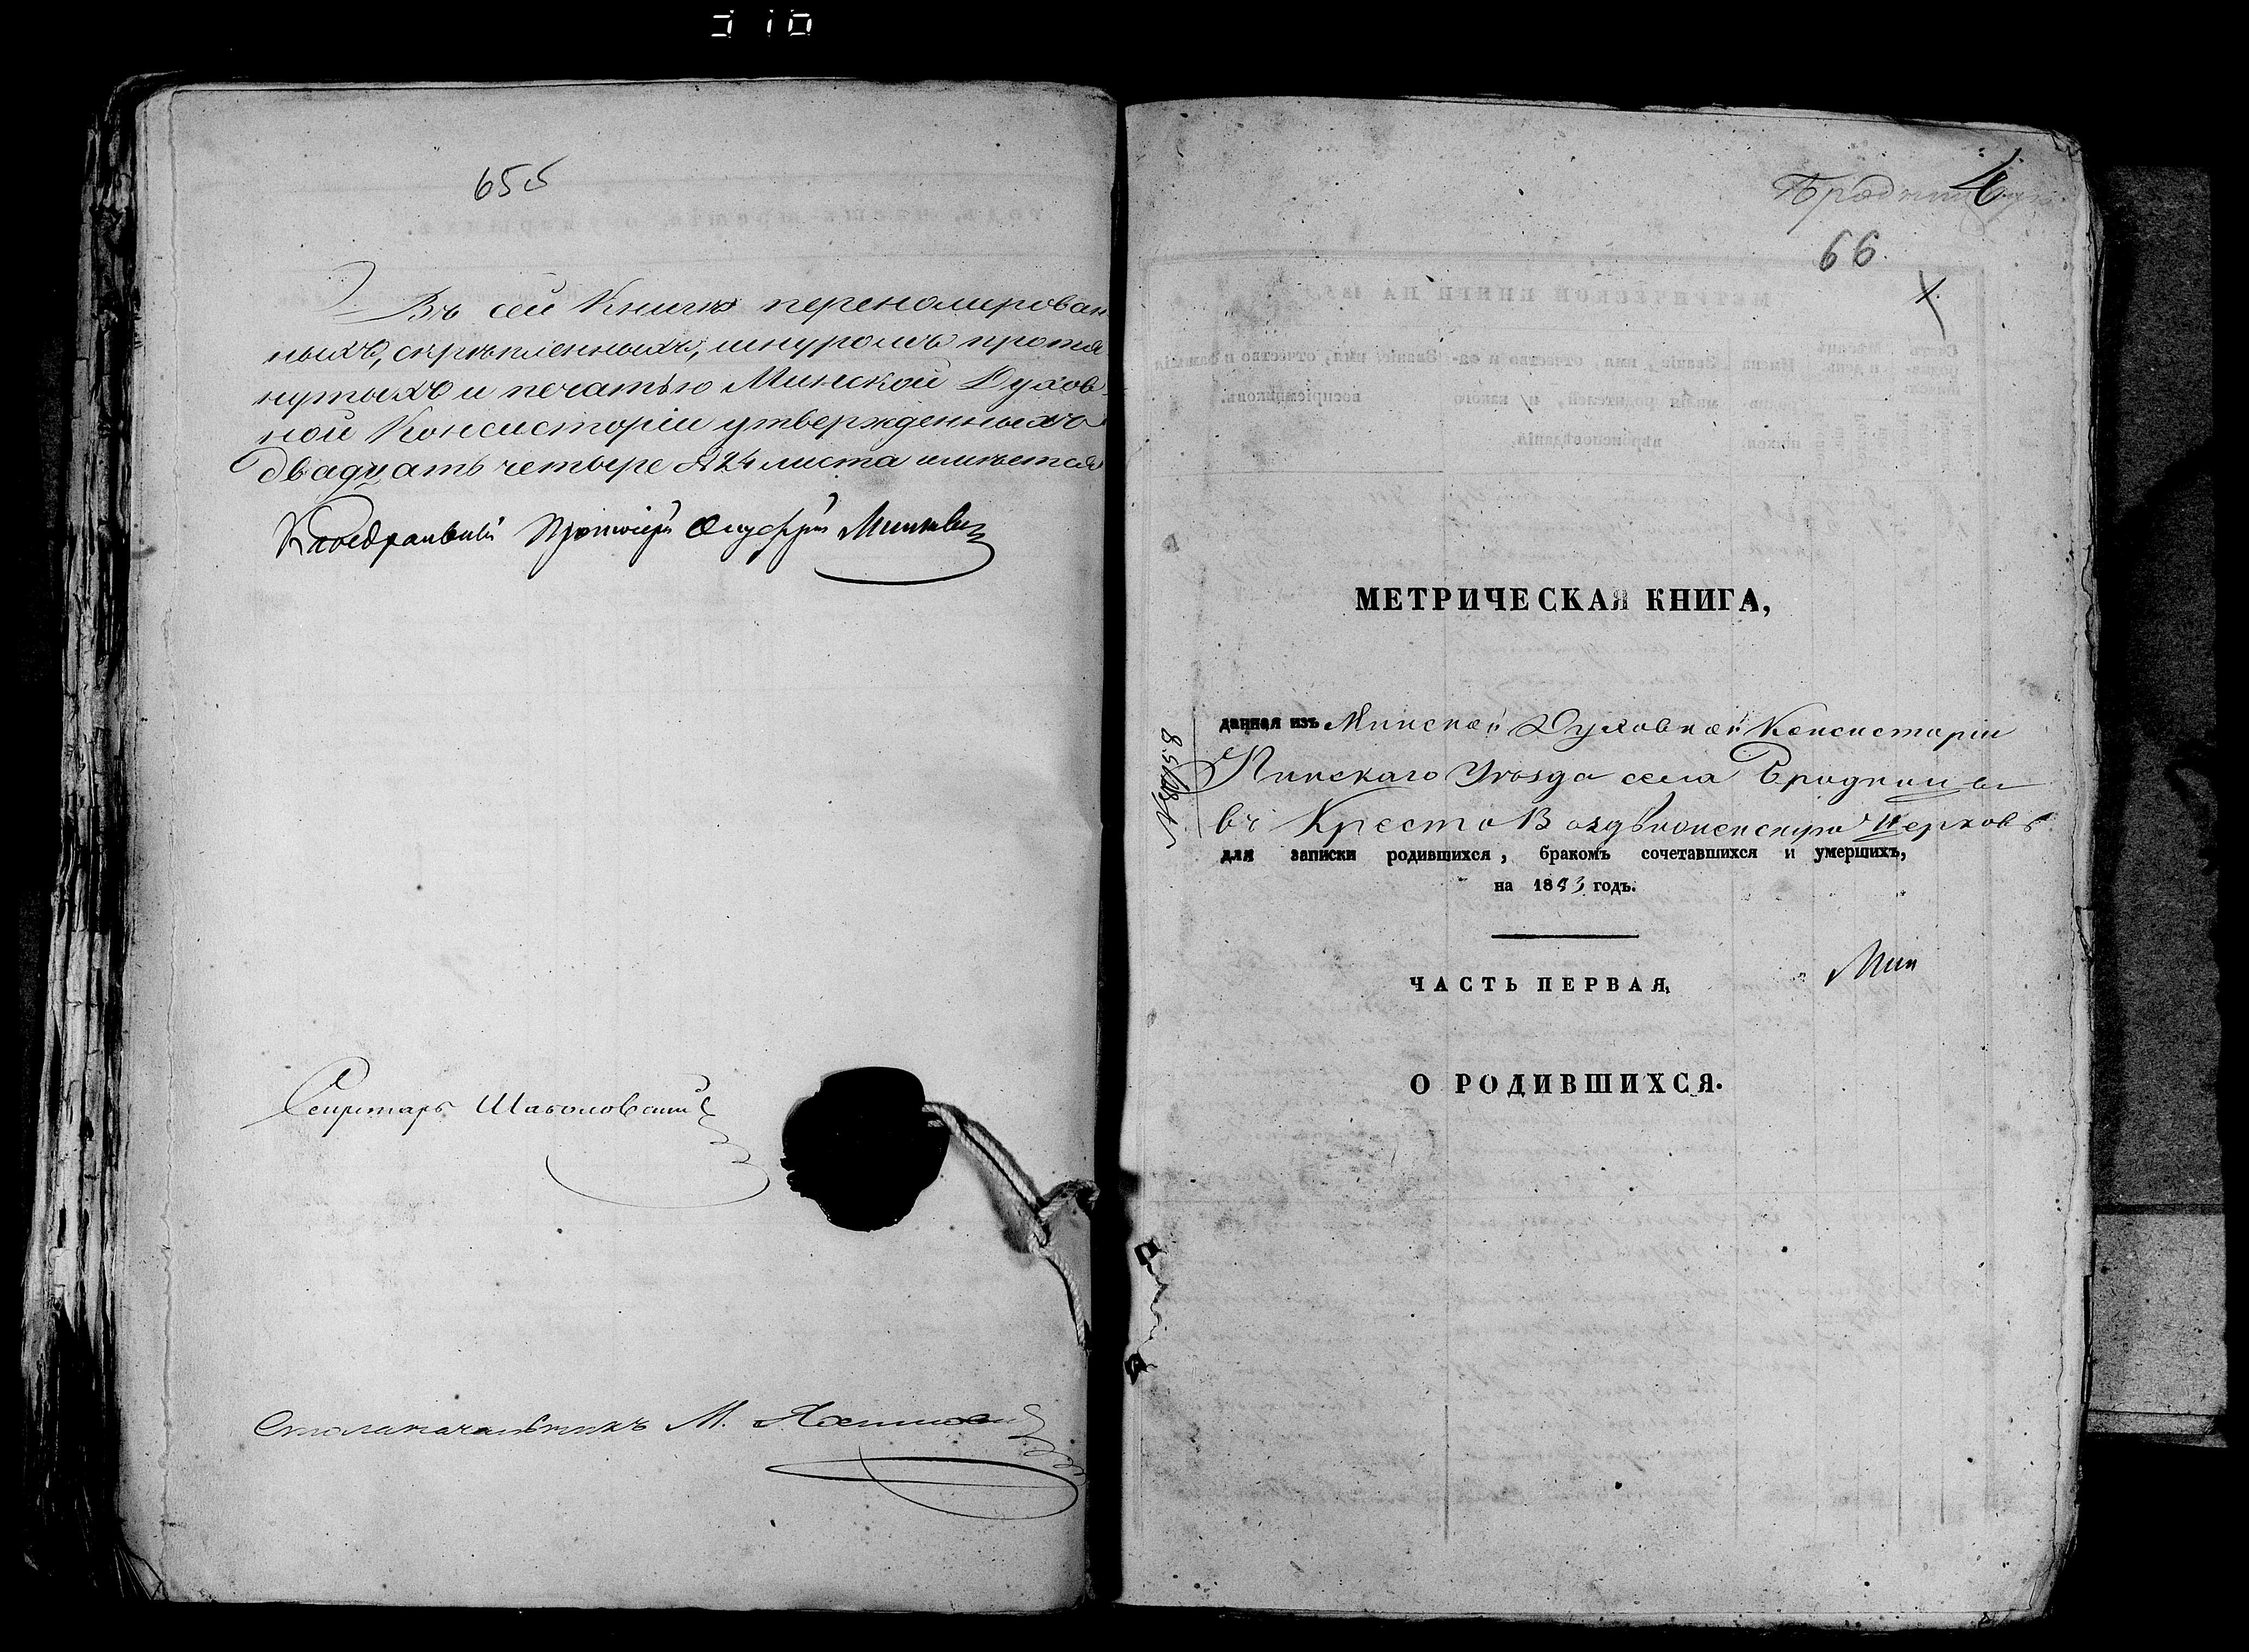 310
65об
Въ сей Книгѣ перенумерован-
ныхъ, скрѣпленныхъ, шнуромъ протя-
нутыхъ и печатью Минской Духов-
ной Консисторіи утвержденныхъ
двадцать четыре 24 листа имѣется
Каѳедральный Протоіерей
Секретарь
Столоначальникъ М.
4
66.
МЕТРИЧЕСКАЯ КНИГА,
данная изъ Минской Духовной Консисторіи
Пинскаго Уѣзда села
въ Кресто Воздвиженскую Церковь
для записки родившихся, бракомъ сочетавшихся и умершихъ,
на 1853 годъ.
ЧАСТЬ ПЕРВАЯ,
Мин
О РОДИВШИХСЯ.